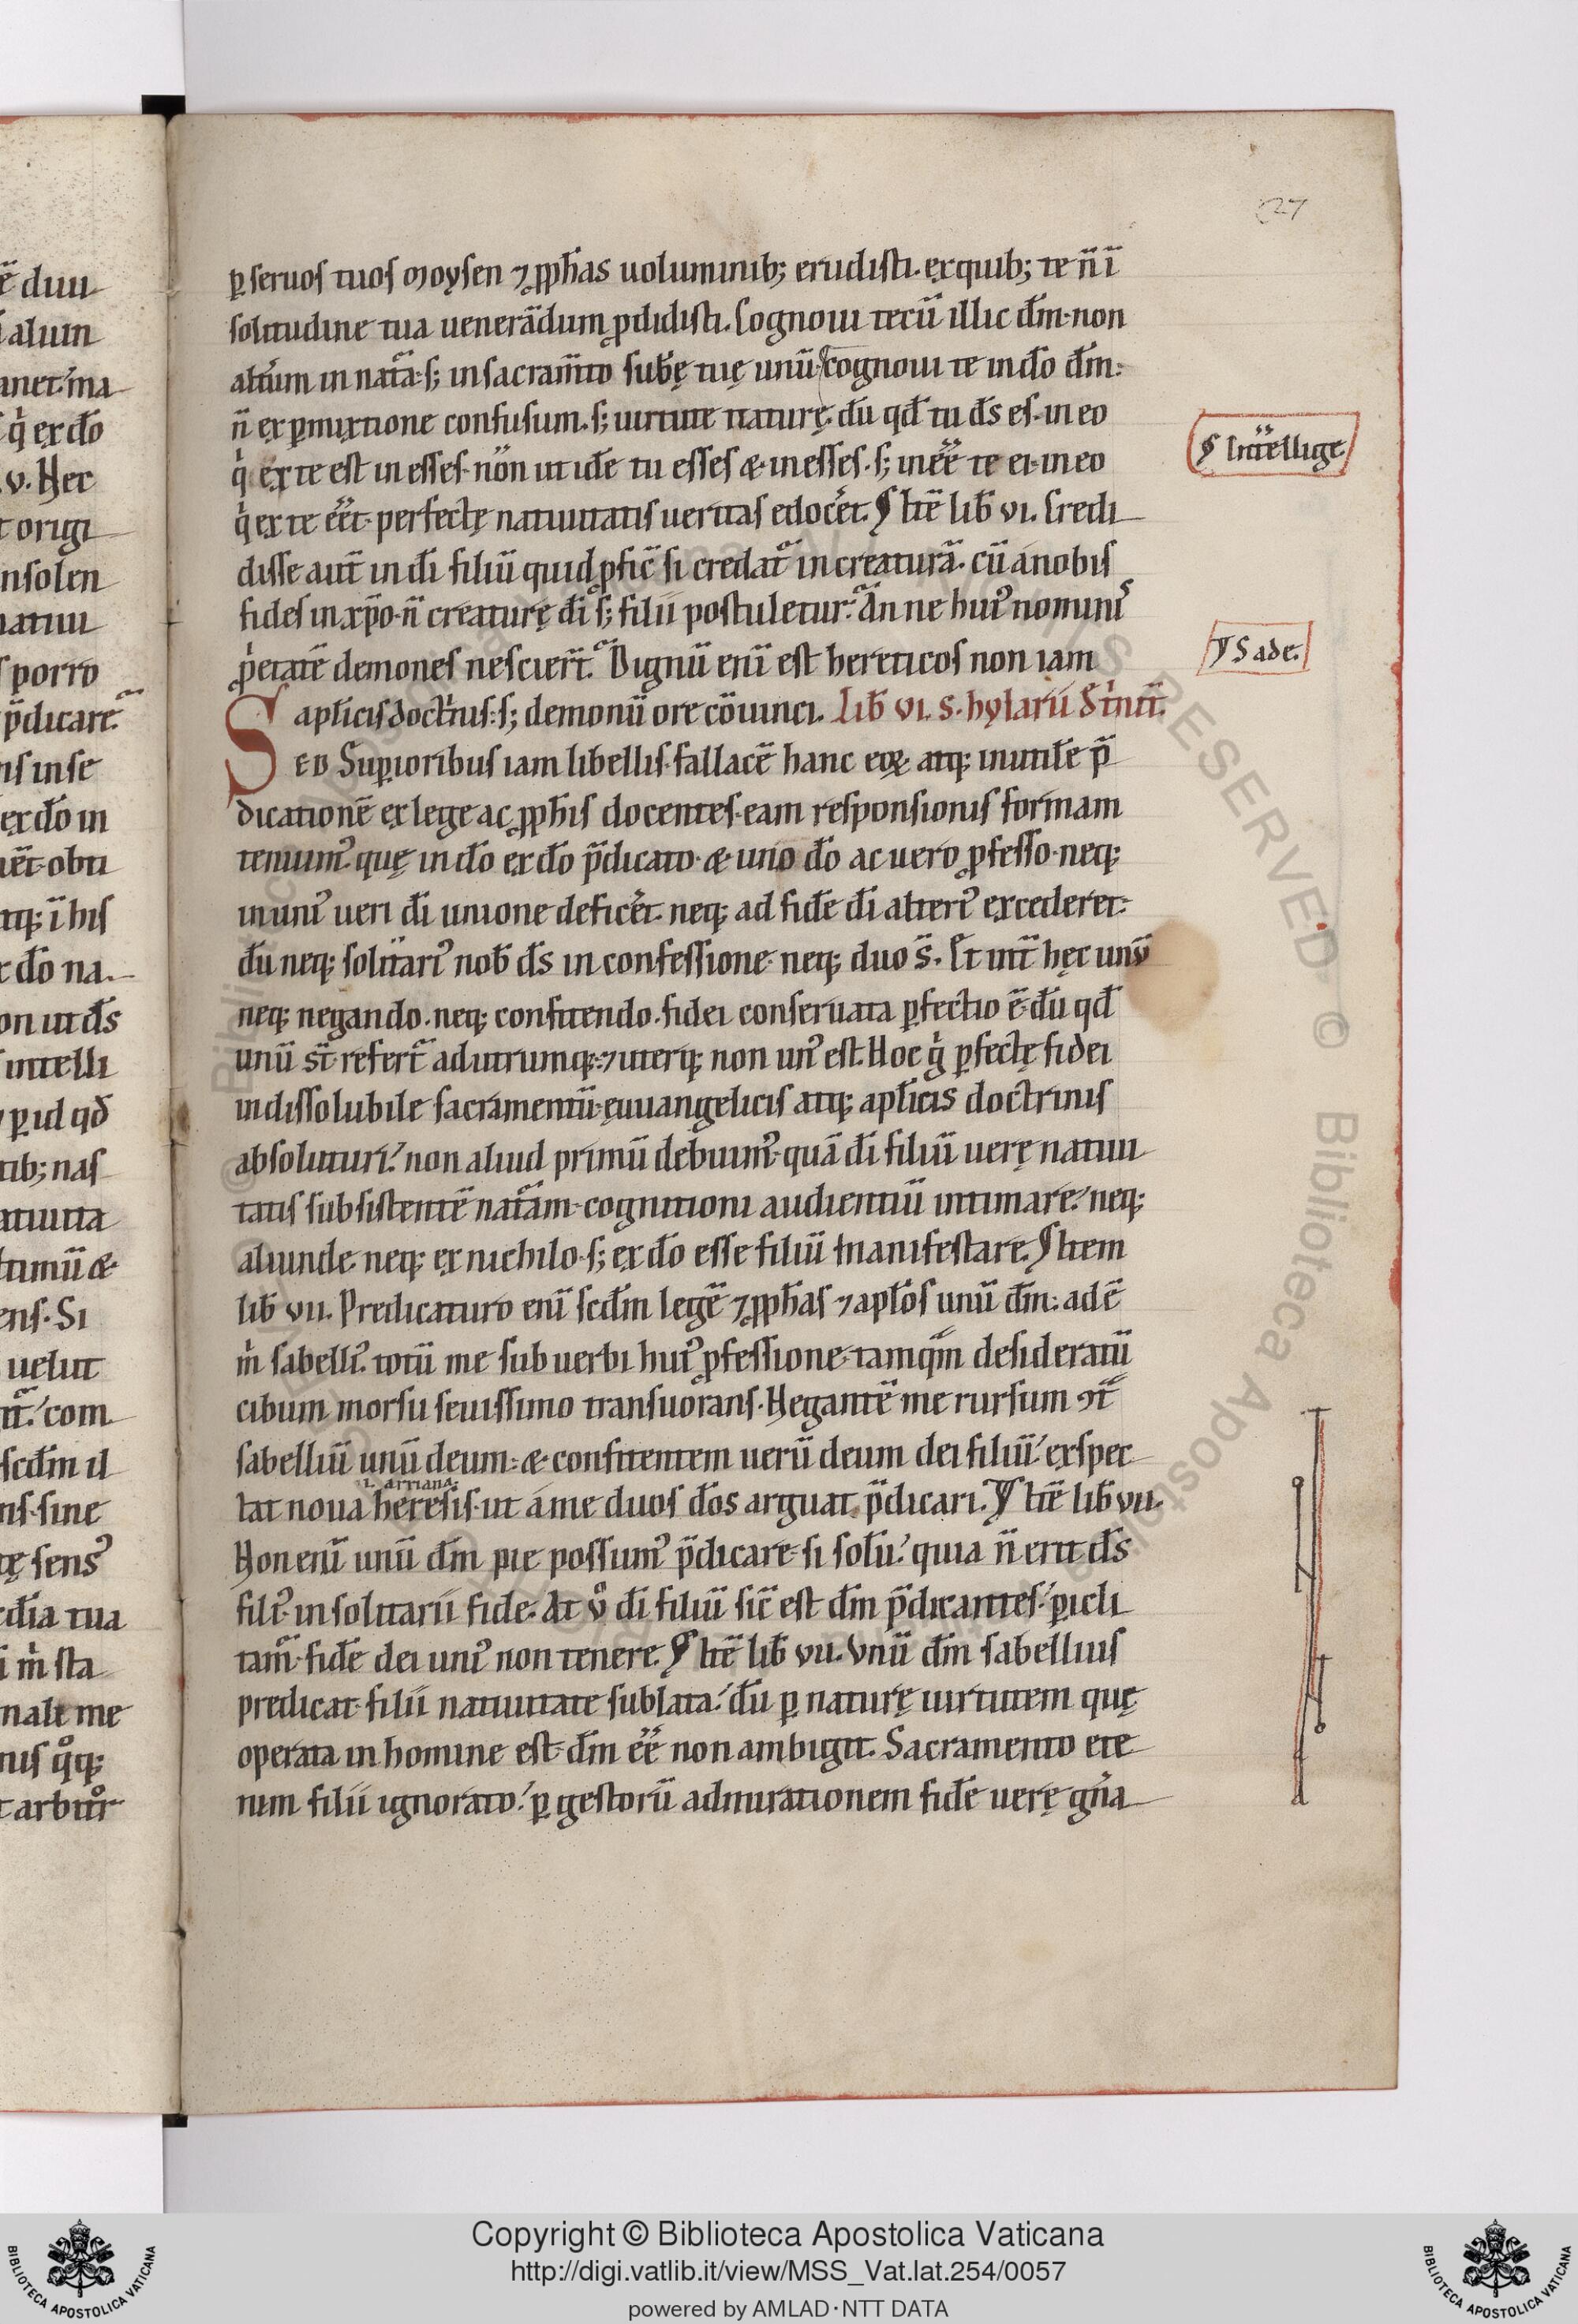 27
ꝑ seruos tuos moẏsen ⁊ ꝓph̄as uoluminib; erudisti. ex quib; te n̄ ī
solitudine tua uenerādum ꝓdidisti. Cognoui tecū illic dm̄. non
alt̄um in nat̄a. s; in sacram̄to sub̄ę tuę unū. cognoui te in do̅ dm̄.
n̄ ex ꝑmixtione confusum. s; uirtute naturę. dū qd̄ tu ds̄ es. in eo
qͥ ex te est in esses. nōn ut idē tu esses & in esses. s; in eē̄ te ei. in eo
qͥ ex te eēt. perfectę natiuitatis ueritas edocēt. ¶ Itē lib̄ vi. Credi
disse aut̄ in di̅ filiū quid ꝓfic̄ si credat̄ in creaturā. cū á nobis
fides in xp̄o. n̄ creaturę di̅ s; filii postuletur. An ne huiꝰ nominis
ꝓͥetatē demones nescier̄t. Dignū eni̅ est hereticos non iam
apl̄icis doctͥnis. s; demonū ore cōuinci. Lib̄ vi. s. hylarii d̄ tͥnit̄.
SED Superioribus iam libellis. fallacē hanc eoꝝ. atq; inutilē p̄
dicationē ex lege ac ꝓph̄is docentes. eam responsionis formam
tenuimꝰ. quę in do̅ ex do̅ p̄dicato. & uno do̅ ac uero ꝓfesso. neq;
in uniꝰ ueri di̅ unione deficēt. neq; ad fidē di̅ alteriꝰ excederet.
dū neq; solitariꝰ nob̄ ds̄ in confessione. neq; duo s̄. Et int̄ hęc unū
neq; negando. neq; confitendo. fidei conseruata ꝑfectio ē. dū qd̄
unū st̄ refert̄ ad utrumq; ⁊ uterq; non unꝰ est. Hoc gͥ ꝑfectę fidei
indissolubile sacramentū. ęuuangelicis atq; apl̄icis doctrinis
absoluturi. non aliud primū debuimꝰ. quā di̅ filiū uerę natiui
tatis subsistentē nat̄am. cognitioni audientiū intimare. neq;
aliunde. neq; ex nichilo. s; ex do̅ esse filiū manifestare. ¶ Item
lib̄ vii. Predicaturo eni̅ scdm̄ legē ⁊ ꝓph̄as ⁊ apl̄os unū dm̄. adē
mͥ sabelliꝰ. totū me sub uerbi huiꝰ ꝓfessione. tamqͣm desideratū
cibum morsu seuissimo transuorans. Negantē me rursum ↄt̄
sabelliū unū deum. & confitentem uerū deum dei filiū. exspec
.i. arriana.
tat noua heresis. ut á me duos do̅s arguat p̄dicari. ¶ Itē lib̄ vii.
Non eni̅ unū dm̄ pie possumꝰ p̄dicare. si solū. quia n̄ erit ds̄
filiꝰ. in solitarii fide. At ů di̅ filiū sic̄ est dm̄ p̄dicantes. ꝑicli
tam̄. fidē dei uniꝰ non tenere. ¶ Itē lib̄ vii. Vnū dm̄ sabellius
predicat. filii natiuitate sublata. dū ꝑ naturę uirtutem quę
operata in homine est. dm̄ eē̄ non ambigit. Sacramento ete
nim filii ignorato. ꝑ gestorū admirationem fidē uerę gn̄a
¶ Intellige.
¶ Sade.
Copyright © Biblioteca Apostolica Vaticana
http://digi.vatlib.it/view/MSS_Vat.lat.254/0057
powered by AMLAD·NTT DATA